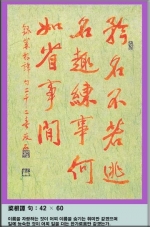 矜名不若逃
名趣練事何
如省事閒
菜根譚 句 : 42 × 60
이름을 자랑하는 것이 어찌 이름을 숨기는 취미만 같겠으며
일에 능숙한 것이 어찌 일을 더는 한가로움만 같겠는가.